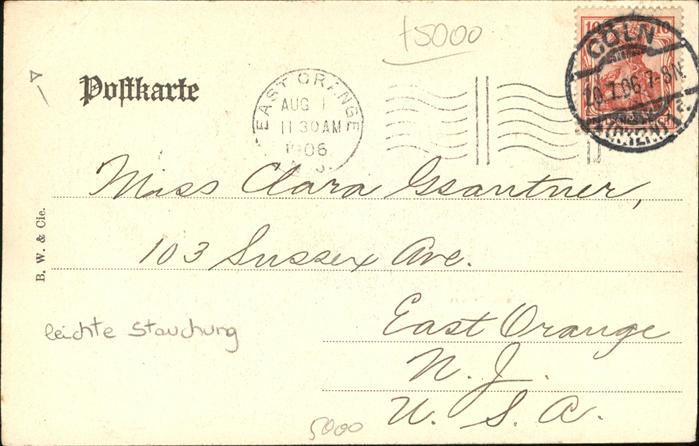 +5000
10 10
CÖLN
20.7.06.7-8N.
Postkarte
EAST ORANGE
AUG 1
11 30 AM
1906
N.J.
Miss Clara
103 Sussex Ave.
East Orange
N. J.
U. S. A.
B. W. & Cie.
leichte Stauchung
5000